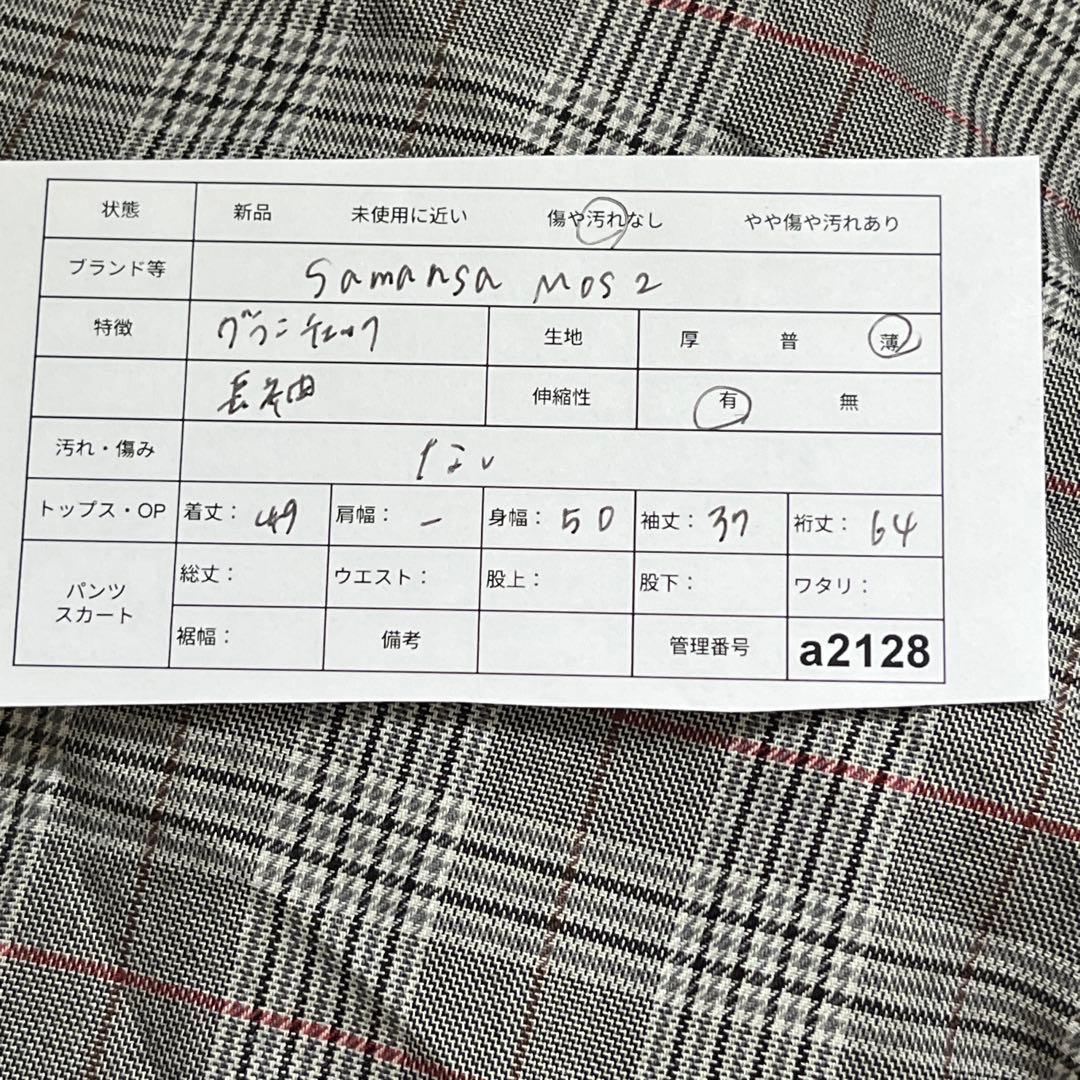 状態 新品 未使用に近い 傷や汚れなし やや傷や汚れあり
ブランド等 Samansa Mos2
特徴 グランチェック 生地 厚 普 薄
長袖 伸縮性 有 無
汚れ・傷み ない
トップス・OP 着丈： 49 肩幅： － 身幅： 50 袖丈： 37 裄丈： 64
パンツ スカート 総丈： ウエスト： 股上： 股下： ワタリ：
裾幅： 備考 管理番号 a2128